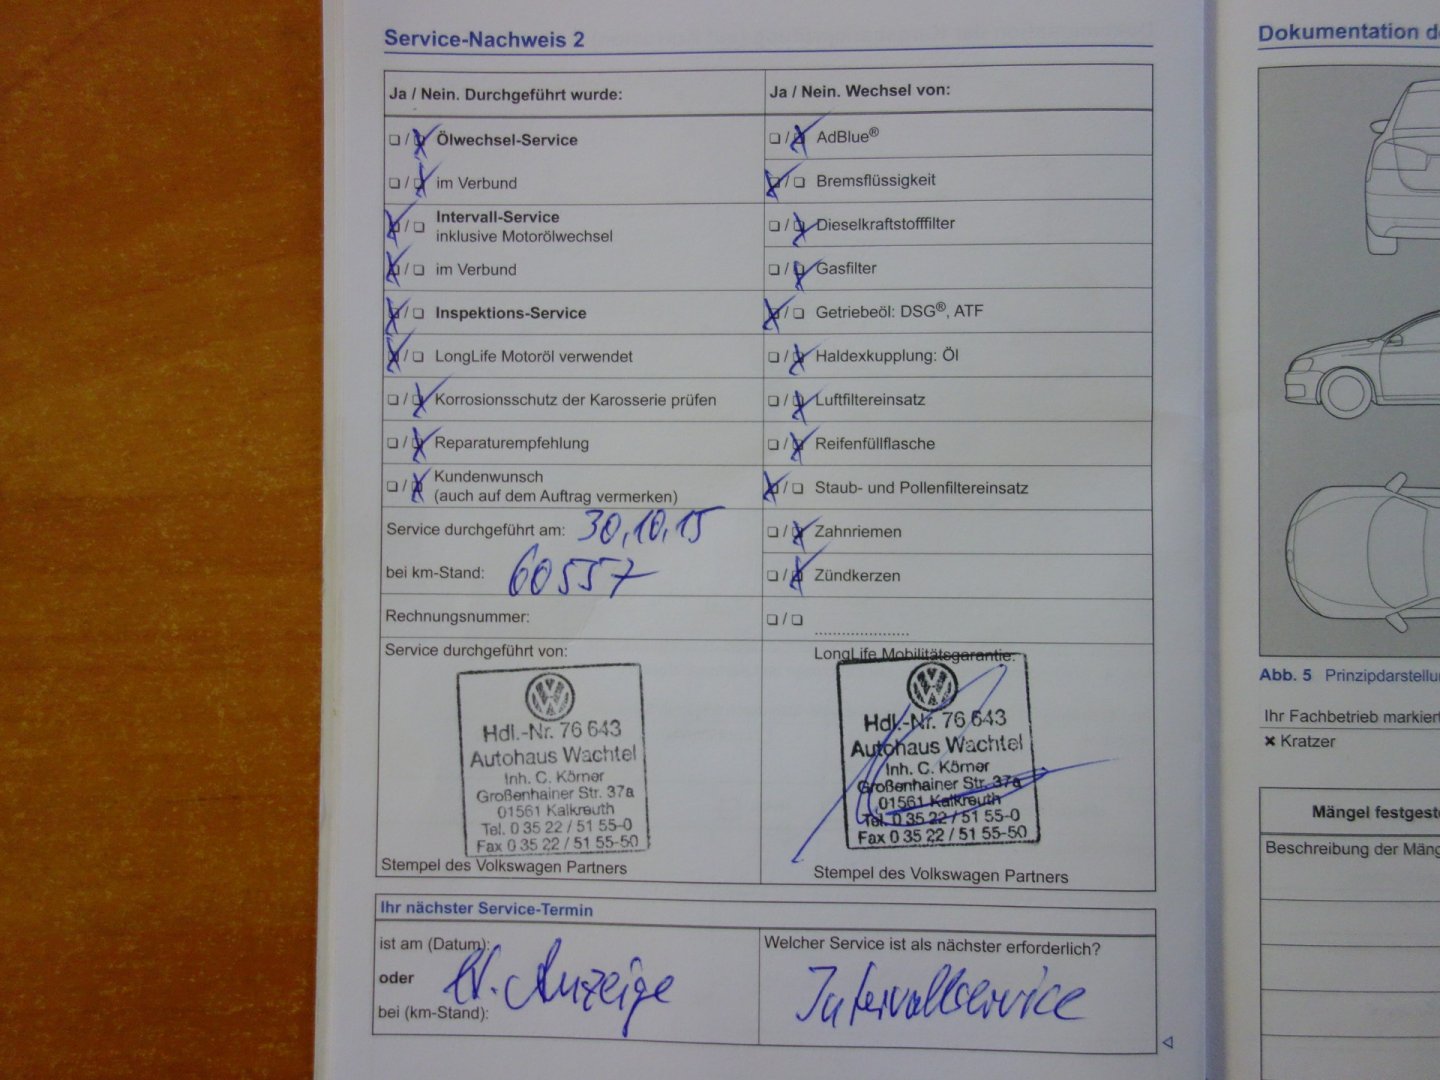 Service-Nachweis 2
Ja / Nein. Durchgeführt wurde:
❏ / ❏ Ölwechsel-Service
❏ / ❏ im Verbund
❏ / ❏ Intervall-Service
inklusive Motorölwechsel
❏ / ❏ im Verbund
❏ / ❏ Inspektions-Service
❏ / ❏ LongLife Motoröl verwendet
❏ / ❏ Korrosionsschutz der Karosserie prüfen
❏ / ❏ Reparaturempfehlung
❏ / ❏ Kundenwunsch
(auch auf dem Auftrag vermerken)
Service durchgeführt am: 30.10.15
bei km-Stand: 60557
Rechnungsnummer:
Service durchgeführt von:
Hdl.-Nr. 76 643
Autohaus Wachtel
Inh. C. Körner
Großenhainer Str. 37a
01561 Kalkreuth
Tel. 0 35 22 / 51 55-0
Fax 0 35 22 / 51 55-50
Stempel des Volkswagen Partners
Ja / Nein. Wechsel von:
❏ / ❏ AdBlue®
❏ / ❏ Bremsflüssigkeit
❏ / ❏ Dieselkraftstofffilter
❏ / ❏ Gasfilter
❏ / ❏ Getriebeöl: DSG®, ATF
❏ / ❏ Haldexkupplung: Öl
❏ / ❏ Luftfiltereinsatz
❏ / ❏ Reifenfüllflasche
❏ / ❏ Staub- und Pollenfiltereinsatz
❏ / ❏ Zahnriemen
❏ / ❏ Zündkerzen
❏ / ❏ .....................
LongLife Mobilitätsgarantie:
Hdl.-Nr. 76 643
Autohaus Wachtel
Inh. C. Körner
Großenhainer Str. 37a
01561 Kalkreuth
Tel. 0 35 22 / 51 55-0
Fax 0 35 22 / 51 55-50
Stempel des Volkswagen Partners
Ihr nächster Service-Termin
ist am (Datum):
oder Anzeige
bei (km-Stand):
Welcher Service ist als nächster erforderlich?
Intervallservice
Dokumentation
Abb. 5
Ihr Fachbetrieb
✖ Kratzer
Mängel
Beschreibung der